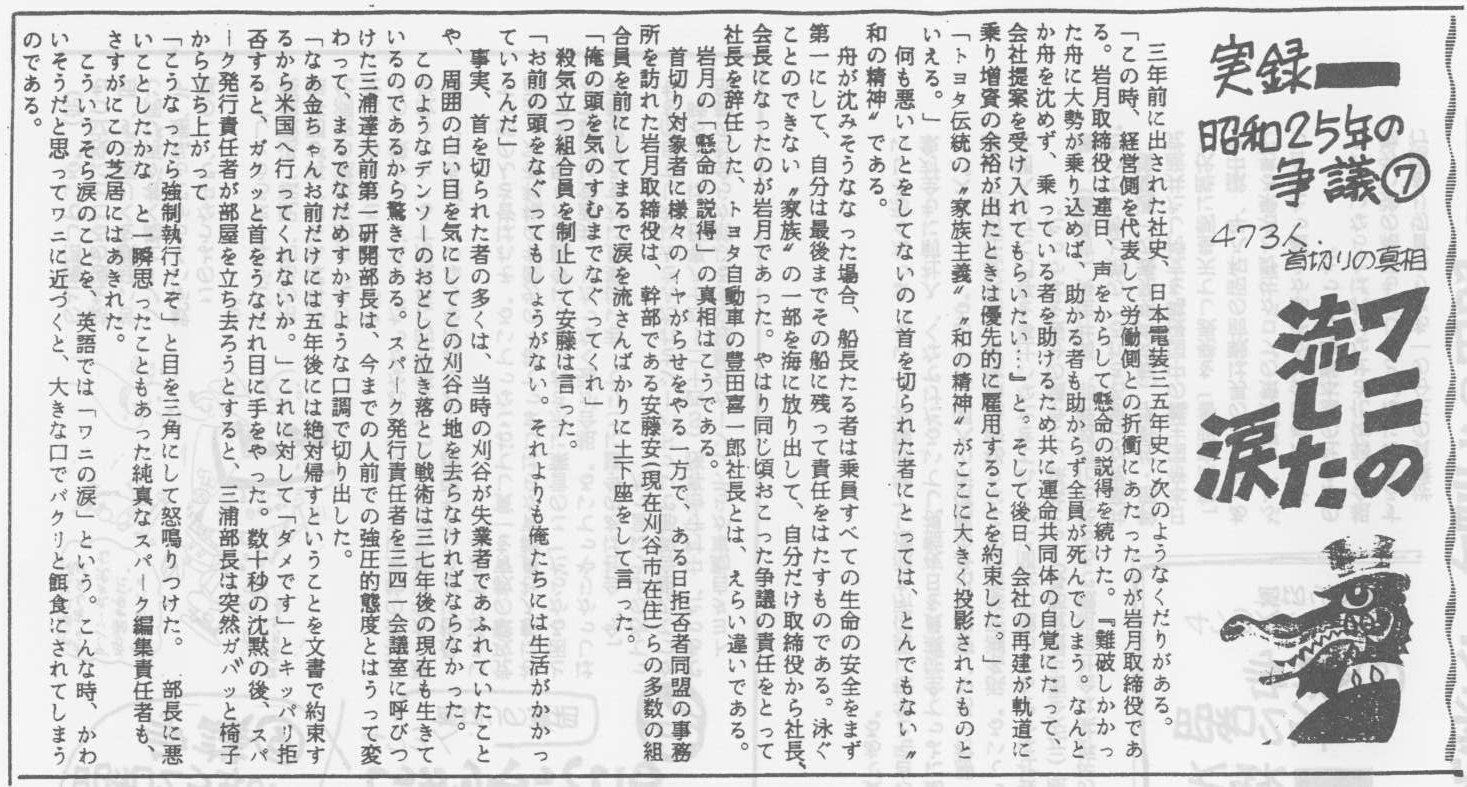 実録
昭和25年の
争議⑦
473人.
首切りの真相
ワニの
流した
涙
三年前に出された社史、日本電装三五年史に次のようなくだりがある。
「この時、経営側を代表して労働側との折衝にあたったのが岩月取締役であ
る。岩月取締役は連日、声をからして懸命の説得を続けた。『難破しかかっ
た舟に大勢が乗り込めば、助かる者も助からず全員が死んでしまう。なんと
か舟を沈めず、乗っている者を助けるため共に運命共同体の自覚にたって、
会社提案を受け入れてもらいたい…』と。そして後日、会社の再建が軌道に
乗り増資の余裕が出たときは優先的に雇用することを約束した。」
「トヨタ伝統の〝家族主義〟〝和の精神〟がここに大きく投影されたものと
いえる。」
何も悪いことをしてないのに首を切られた者にとっては、とんでもない〝
和の精神〟である。
舟が沈みそうななった場合、船長たる者は乗員すべての生命の安全をまず
第一にして、自分は最後までその船に残って責任をはたすものである。泳ぐ
ことのできない〝家族〟の一部を海に放り出して、自分だけ取締役から社長、
会長になったのが岩月であった。やはり同じ頃おこった争議の責任をとって
社長を辞任した、トヨタ自動車の豊田喜一郎社長とは、えらい違いである。
岩月の「懸命の説得」の真相はこうである。
首切り対象者に様々のイヤがらせをやる一方で、ある日拒否者同盟の事務
所を訪れた岩月取締役は、幹部である安藤安(現在刈谷市在住)らの多数の組
合員を前にしてまるで涙を流さんばかりに土下座をして言った。
「俺の頭を気のすむまでなぐってくれ」
殺気立つ組合員を制止して安藤は言った。
「お前の頭をなぐってもしょうがない。それよりも俺たちには生活がかかっ
ているんだ」
事実、首を切られた者の多くは、当時の刈谷が失業者であふれていたこと
や、周囲の白い目を気にしてこの刈谷の地を去らなければならなかった。
このようなデンソーのおどしと泣き落とし戦術は三七年後の現在も生きて
いるのであるから驚きである。スパーク発行責任者を三四一会議室に呼びつ
けた三浦達夫前第一研開部長は、今までの人前での強圧的態度とはうって変
わって、まるでなだめすかすような口調で切り出した。
「なあ金ちゃんお前だけには五年後には絶対帰すということを文書で約束す
るから米国へ行ってくれないか。」これに対して「ダメです」とキッパリ拒
否すると、ガクッと首をうなだれ目に手をやった。数十秒の沈黙の後、スパ
ーク発行責任者が部屋を立ち去ろうとすると、三浦部長は突然ガバッと椅子
から立ち上がって
「こうなったら強制執行だぞ」と目を三角にして怒鳴りつけた。　部長に悪
いことしたかな　と一瞬思ったこともあった純真なスパーク編集責任者も、
さすがにこの芝居にはあきれた。
こういううそら涙のことを、英語では「ワニの涙」という。こんな時、かわ
いそうだと思ってワニに近づくと、大きな口でパクリと餌食にされてしまう
のである。